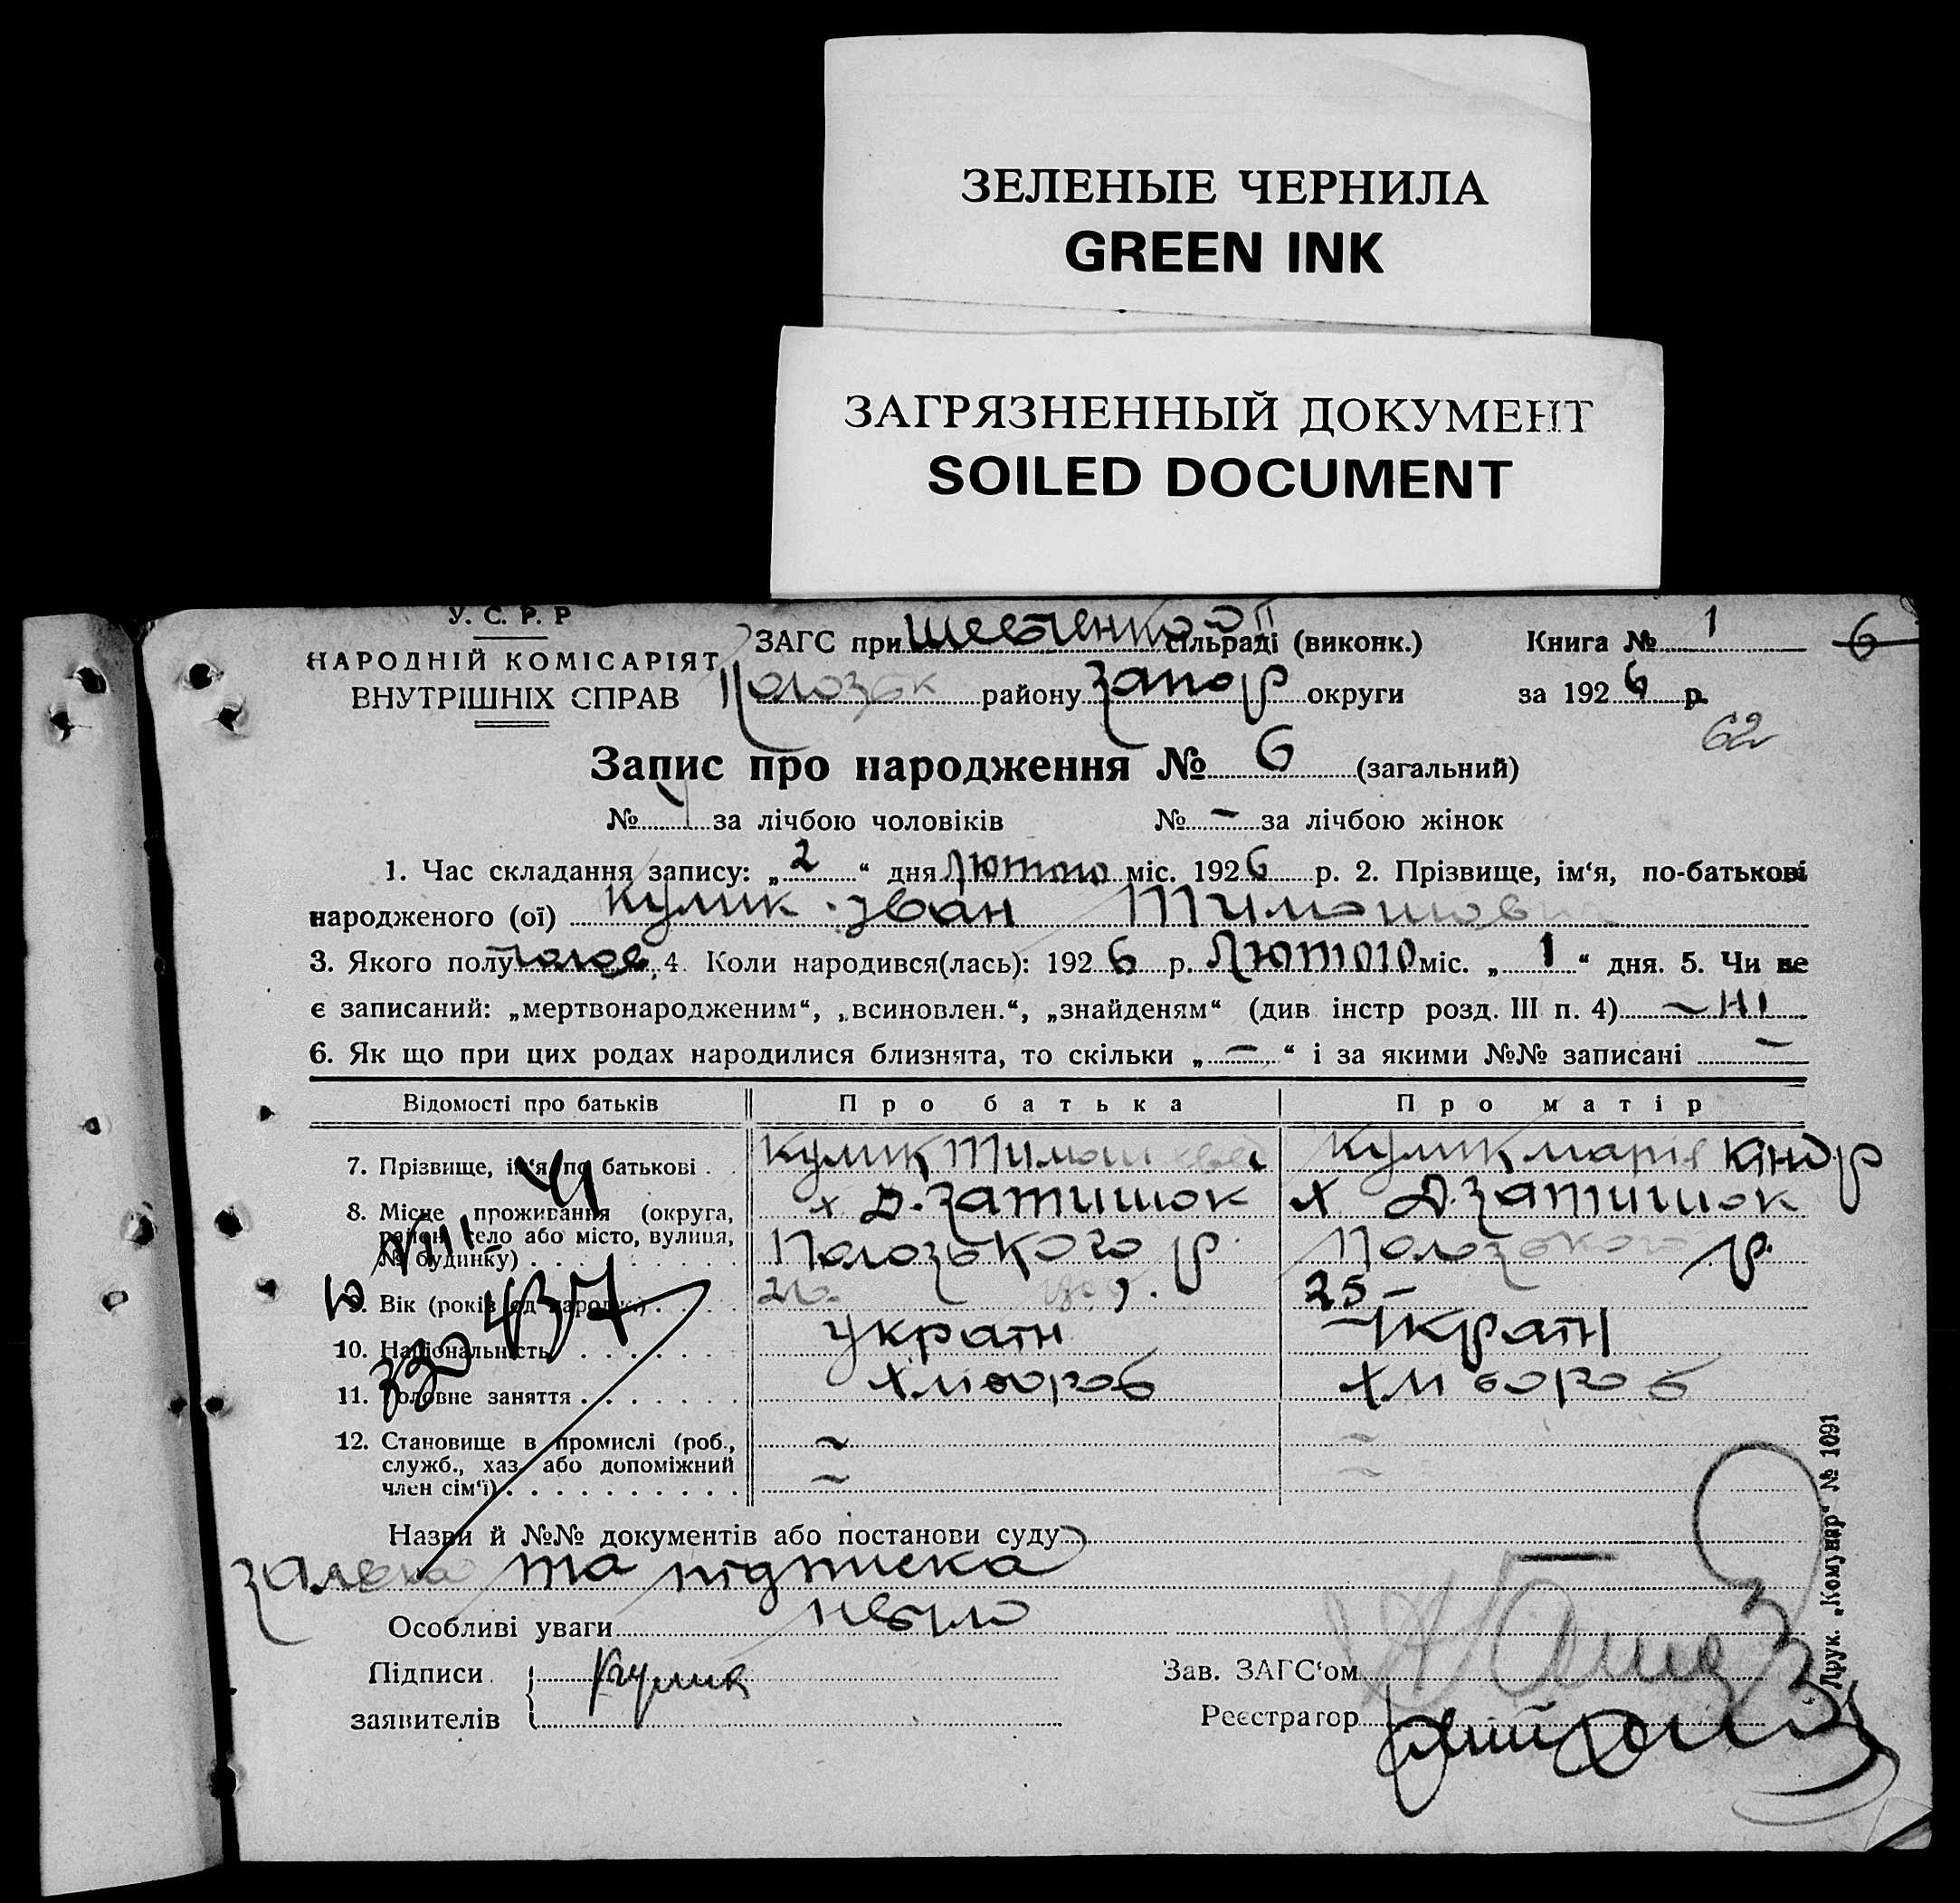 ЗЕЛЕНЫЕ ЧЕРНИЛА
GREEN INK
ЗАГРЯЗНЕННЫЙ ДОКУМЕНТ
SOILED DOCUMENT
У. С. Р. Р
НАРОДНІЙ КОМІСАРІЯТ
ВНУТРІШНІХ СПРАВ
ЗАГС при Шевченко сільраді (виконк.) Книга № 1 6
району Запор округи за 1926 р.
62
Запис про народження № 6 (загальний)
№ за лічбою чоловіків № – за лічбою жінок
1. Час складання запису: „2“ дня лютого міс. 1926 р. 2. Прізвище, ім‘я, по-батькові
народженого (ої) Кулик Іван
3. Якого полу чолов 4. Коли народився(лась): 1926 р. Лютого міс. „1“ дня. 5. Чи не
є записаний: „мертвонародженим“, „всиновлен.“, „знайденям“ (див інстр розд. III п. 4) – ні
6. Як що при цих родах народилися близнята, то скільки „–“ і за якими №№ записані –
Відомості про батьків Про батька Про матір
7. Прізвище, ім‘я, по батькові Кулик Тимош Кулик Марія Кіндр
8. Місце проживання (округа, х Д. Затишок х Д. Затишок
район, село або місто, вулиця, Пологзького р. Пологзького р.
№ будинку)
9. Вік (років од народж.) 25
10. Національність Україн Україн
11. Головне заняття Хлібороб Хлібороб
12. Становище в промислі (роб., ~ ~
служб., хаз. або допоміжний ~ ~
член сім‘ї)
Назви й №№ документів або постанови суду
заявка та підписка
Особливі уваги
Підписи Кулик Зав. ЗАГС‘ом
заявителів Реєстратор
Друк. „Комунар“ № 1091